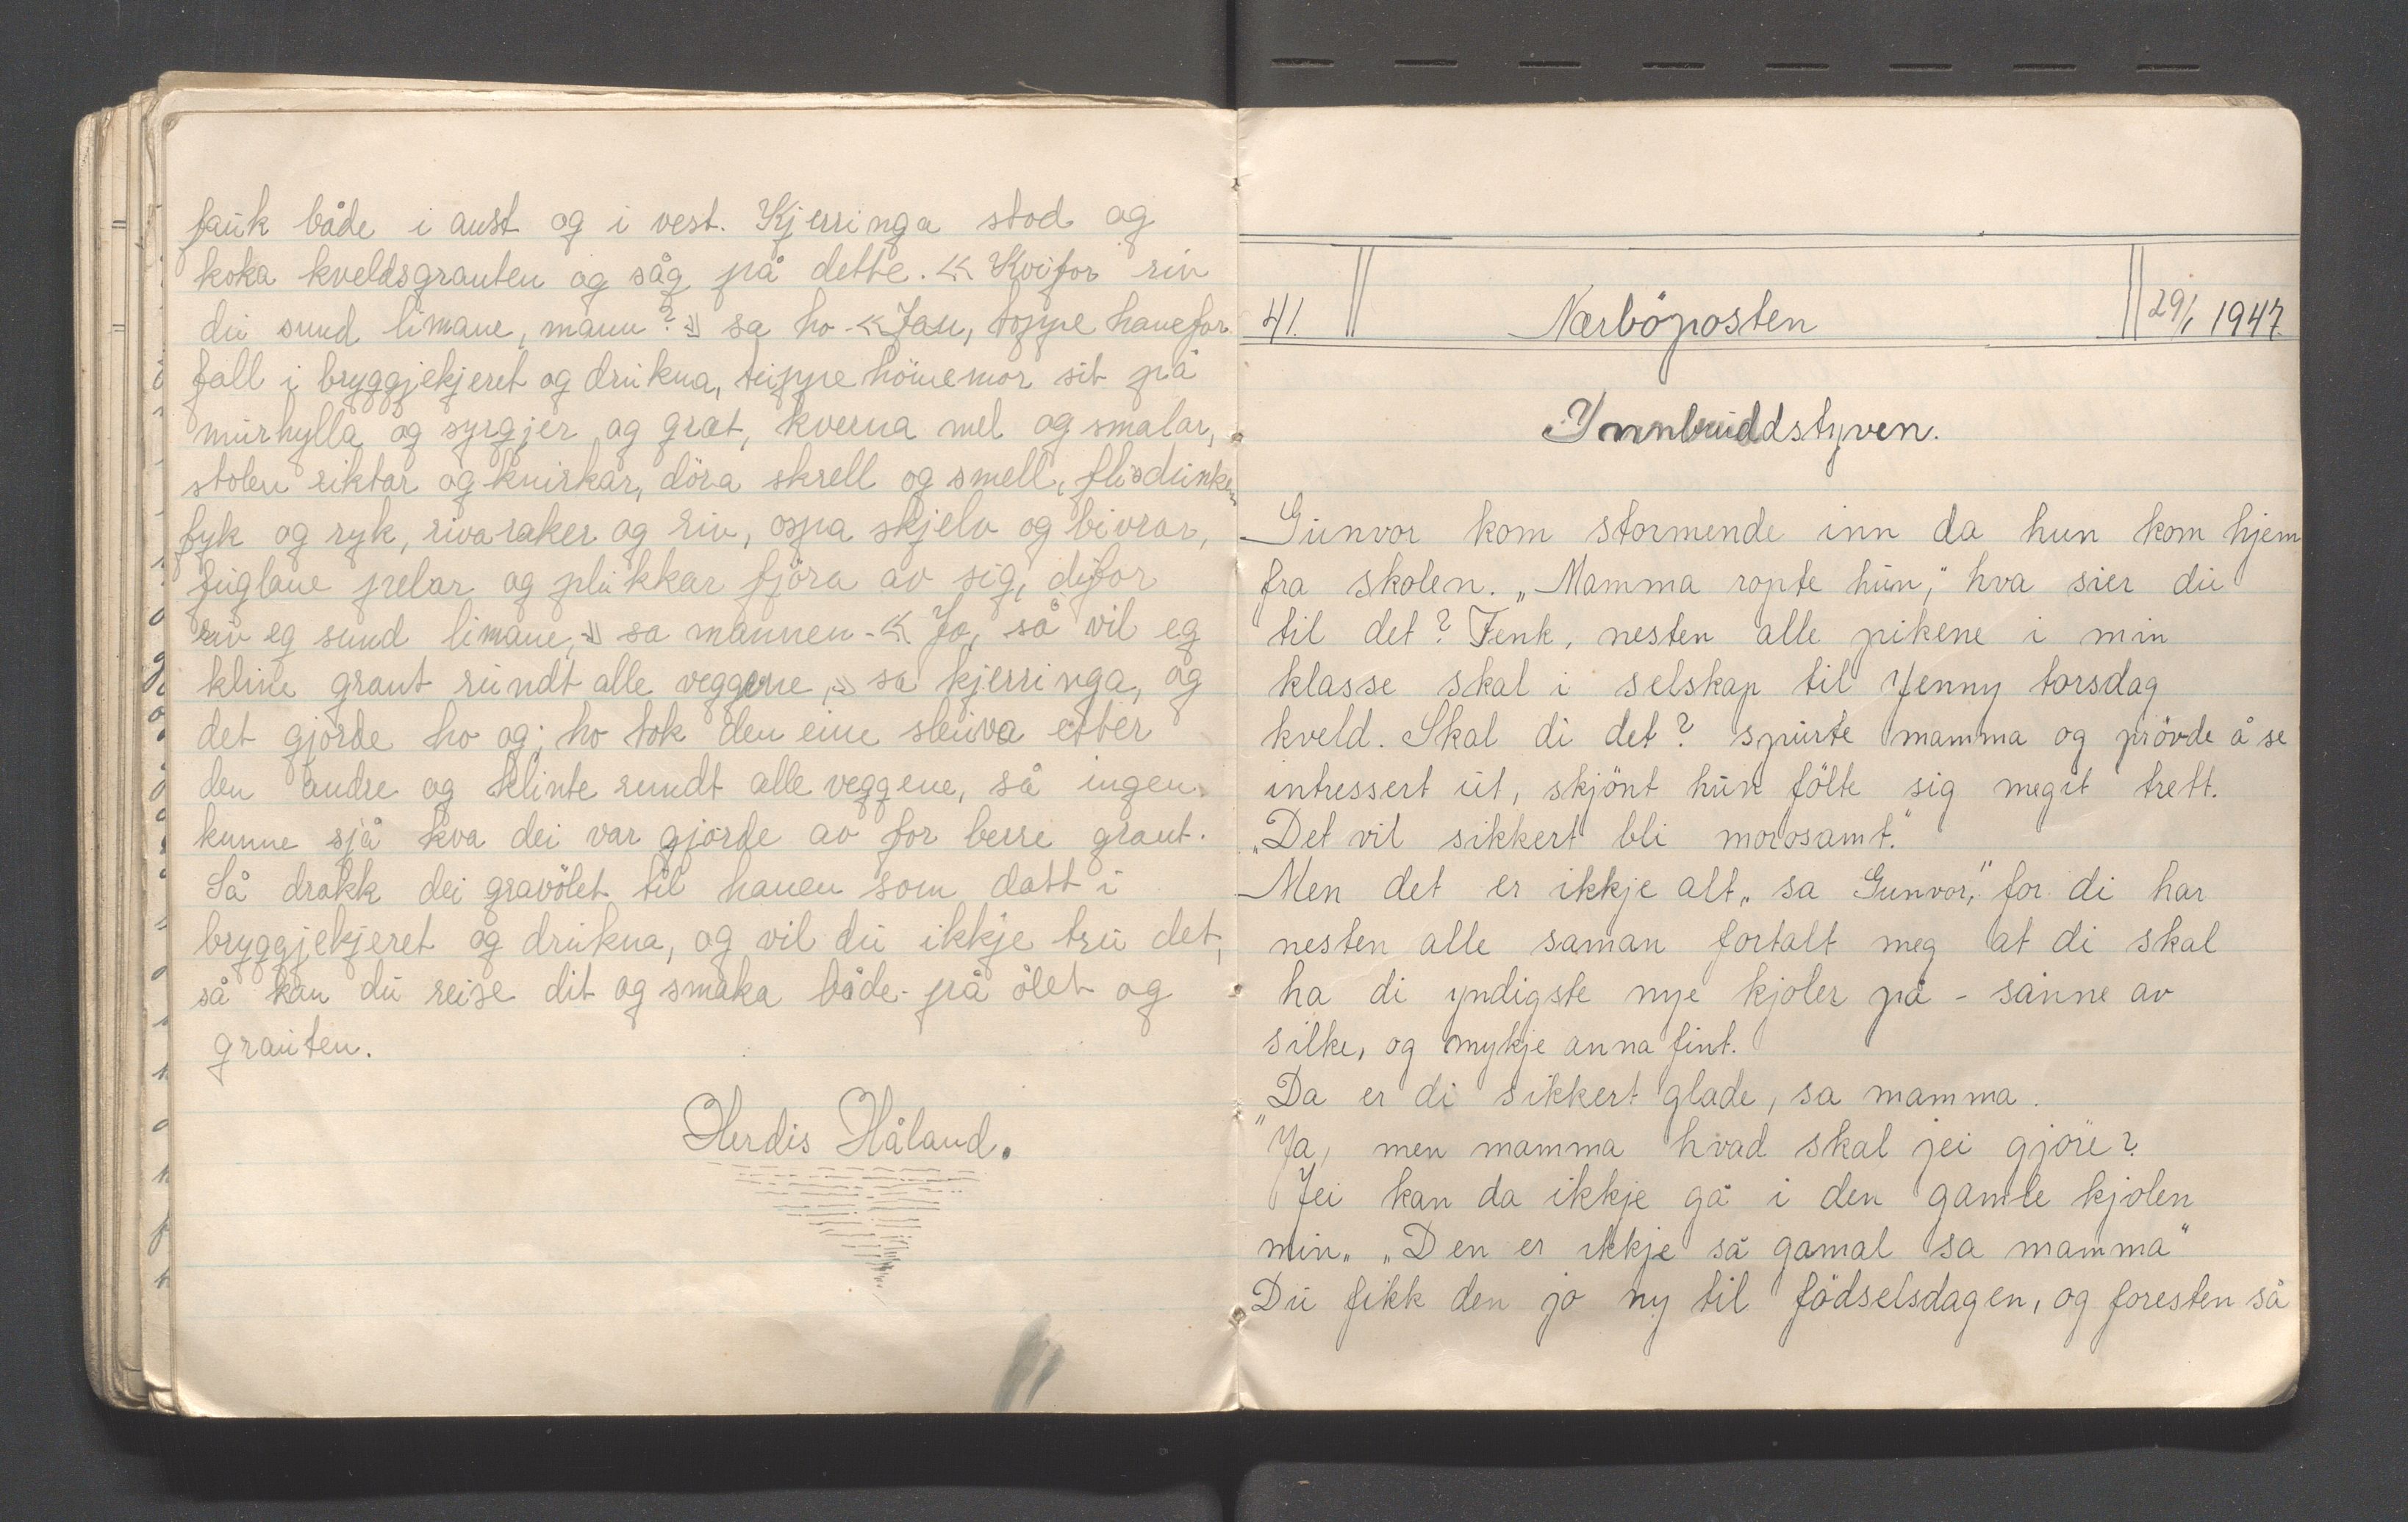 fauk både i aust og i vest. Kjerringa stod og
koka kveldsgrauten og såg på dette. « Kvifor riv
du sund limane, mann?» sa ho - « Jau, toppe hanefar
fall i bryggjekjeret og drukna, teippe hönemor sit på
murhylla og syrgjer og græt, kverna mel og smalar,
stolen riktar og knirkar, döra skrell og smell, flisdunken
fyk og ryk, riva raker og riv, ospa skjelv og bivrar,
fuglane pelar og plukkar fjöra av sig, difor
riv eg sund limane,» sa mannen - « Ja, så vil eg
kline graut rundt alle veggene,» sa kjerringa, og
det gjorde ho og; ho tok den eine sleiva etter
den andre og klinte rundt alle veggene, så ingen
kunne sjå kva dei var gjorde av for berre graut.
Så drakk dei gravölet til hanen som datt i
bryggjekjeret og drukna, og vil du ikkje tru det,
så kan du reise dit og smaka både på ölet og
grauten.
Herdis Håland.
41. Nærböposten 29/1 1947.
Innbruddstyven.
Gunvor kom stormende inn da hun kom hjem
fra skolen. „Mamma ropte hun," hva sier du
til det? Tenk, nesten alle pikene i min
klasse skal i selskap til Jenny torsdag
kveld. Skal di det? spurte mamma og prövde å se
intressert ut, skjönt hun fölte sig meget trett.
„Det vil sikkert bli morosamt."
Men det er ikkje alt„ sa Gunvor," for di har
nesten alle saman fortalt meg at di skal
ha di yndigste nye kjoler på - sånne av
silke, og mykje anna fint.
Da er di sikkert glade, sa mamma.
"Ja, men mamma hvad skal jei gjöre?
Jei kan da ikkje gå i den gamle kjolen
min„ „Den er ikkje så gamal sa mamma"
Du fikk den jo ny til födselsdagen, og foresten så